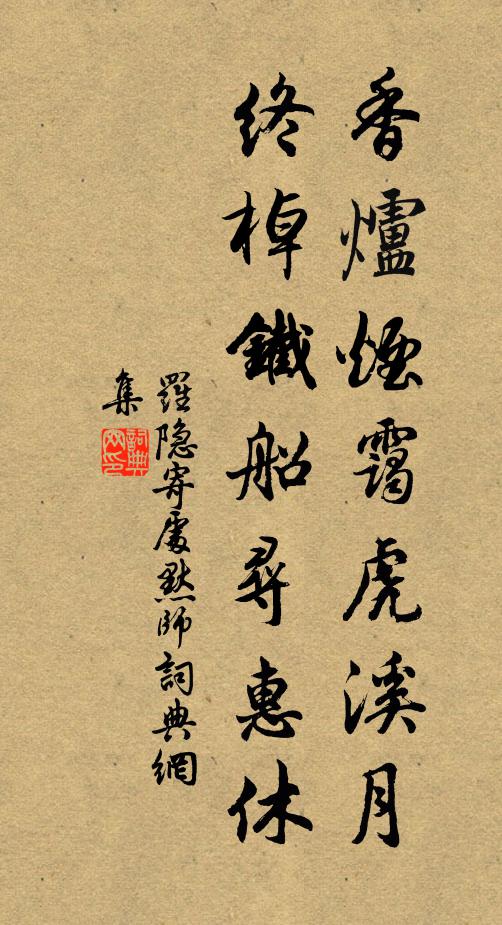 香爐煙靄虎溪月
終棹鐵船尋惠休
羅隐寄處默師詞典網
集
詞典
网印